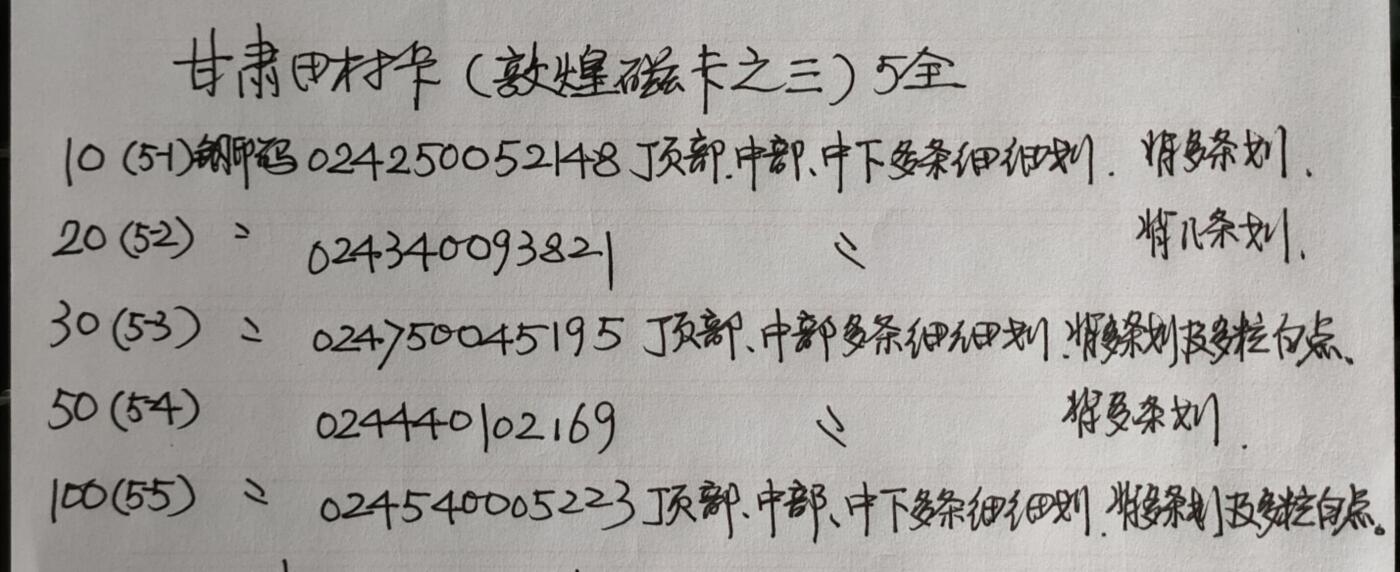 甘肃田村卡（敦煌磁卡之三）5全
10（5-1）钢印码024250052148顶部.中部、中下多条细细划. 背多条划.
20（5-2） 〃 024340093821 〃 背几条划.
30（5-3） 〃 024750045195 顶部、中部多条细细划.背多条划及多粒白点、
50（5-4） 024440102169 〃 背多条划.
100（5-5） 〃 024540005223顶部、中部、中下多条细细划.背多条划及多粒白点。